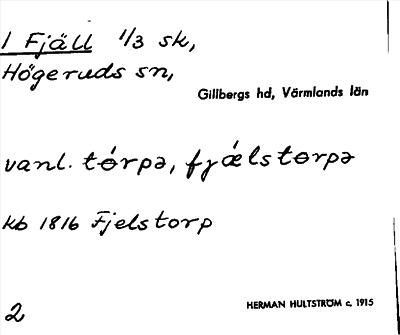 1 Fjäll 1/3 sk,
Högeruds sn,
Gillbergs hd, Värmlands län
vanl. tórpə, fjǽlstorpə
kb 1816 Fjelstorp
2
HERMAN HULTSTRÖM c. 1915